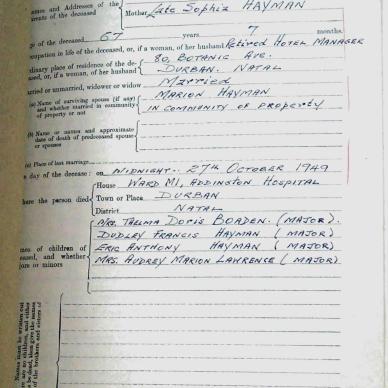 ames and Addresses of the
rents of the deceased
Mother Late Sophia HAYMAN
ge of the deceased 67 years 7 months.
cupation in life of the deceased, or, if a woman, of her husband Retired HOTEL MANAGER
dinary place of residence of the de-
ased, or, if a woman, of her husband
80, BOTANIC AVE.
DURBAN. NATAL
arried or unmarried, widower or widow MARRIED
(a) Name of surviving spouse (if any)
and whether married in community
of property or not
MARION HAYMAN
IN COMMUNITY OF PROPERTY
(b) Name or names and approximate
date of death of predeceased spouse
or spouses
(c) Place of last marriage
e day of the decease: on MIDNIGHT. 27TH OCTOBER 1949
here the person died
House WARD M1, ADDINGTON HOSPITAL
Town or Place DURBAN
District NATAL
mes of children of
eased, and whether
jors or minors
MRS. THELMA DORIS BOADEN. (MAJOR).
DUDLEY FRANCIS HAYMAN (MAJOR)
ERIC ANTHONY HAYMAN (MAJOR)
MRS. AUDREY MARION LAWRENCE (MAJOR)
Names must be written out
re are no children, and either
be dead, then give the names
of the brothers and sisters of